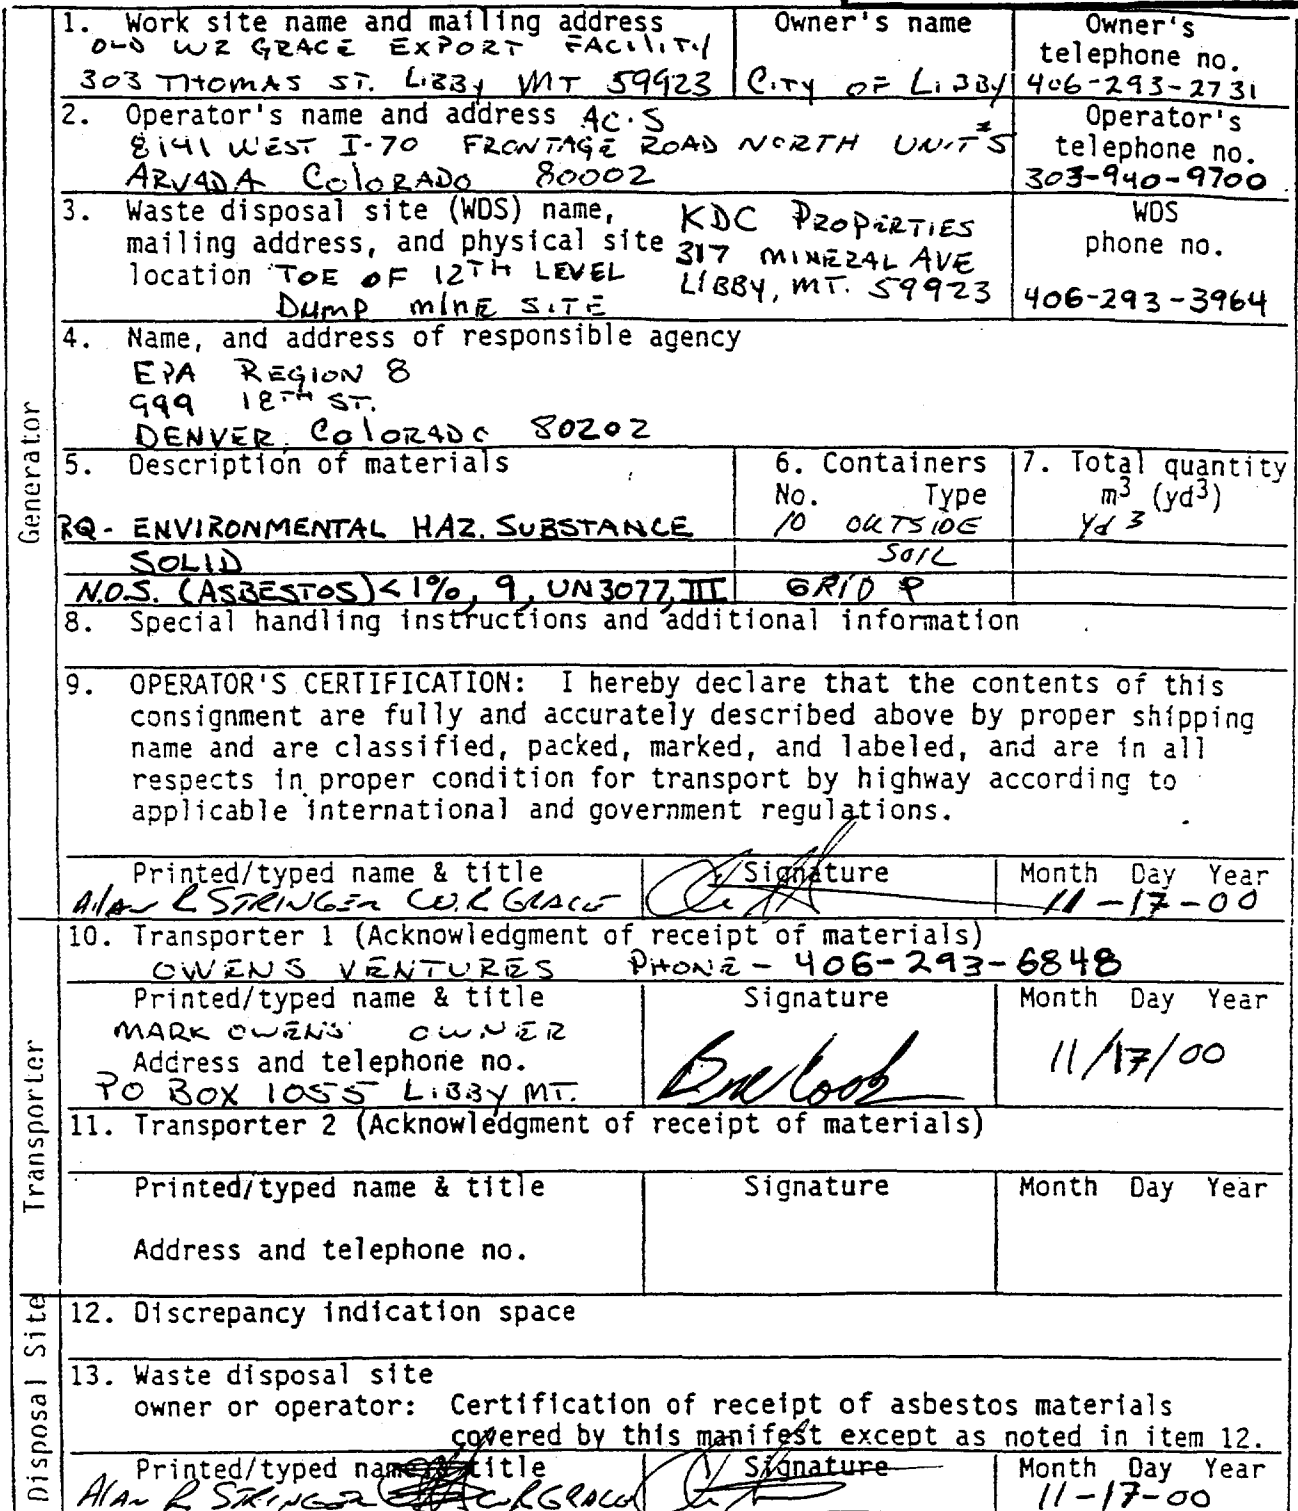 1. Work site name and mailing address
OLD WR GRACE EXPORT FACILITY
303 THOMAS ST. LIBBY MT 59923
Owner's name
CITY OF LIBBY
Owner's
telephone no.
406-293-2731
2. Operator's name and address AC.S
8141 WEST I-70 FRONTAGE ROAD NORTH UNIT #5
ARVADA COLORADO 80002
Operator's
telephone no.
303-940-9700
3. Waste disposal site (WDS) name,
mailing address, and physical site
location TOE OF 12TH LEVEL
DUMP MINE SITE
KDC PROPERTIES
317 MINERAL AVE
LIBBY, MT. 59923
WDS
phone no.
406-293-3964
4. Name, and address of responsible agency
EPA REGION 8
999 18TH ST.
DENVER COLORADO 80202
Generator
5. Description of materials
6. Containers
No. Type
7. Total quantity
m3 (yd3)
RQ- ENVIRONMENTAL HAZ. SUBSTANCE
10 OUTSIDE
Yd 3
SOLID
SOIL
N.O.S. (ASBESTOS) <1%, 9, UN3077, III
GRID P
8. Special handling instructions and additional information
9. OPERATOR'S CERTIFICATION: I hereby declare that the contents of this
consignment are fully and accurately described above by proper shipping
name and are classified, packed, marked, and labeled, and are in all
respects in proper condition for transport by highway according to
applicable international and government regulations.
Printed/typed name & title
Alan R STRINGER W.R GRACE
Signature
Month Day Year
11-17-00
Transporter
10. Transporter 1 (Acknowledgment of receipt of materials)
OWENS VENTURES PHONE - 406-293-6848
Printed/typed name & title
MARK OWENS OWNER
Address and telephone no.
PO BOX 1055 LIBBY MT.
Signature
Month Day Year
11/17/00
11. Transporter 2 (Acknowledgment of receipt of materials)
Printed/typed name & title
Signature
Month Day Year
Address and telephone no.
Disposal Site
12. Discrepancy indication space
13. Waste disposal site
owner or operator: Certification of receipt of asbestos materials
covered by this manifest except as noted in item 12.
Printed/typed name & title
Alan R STRINGER W R GRACE
Signature
Month Day Year
11-17-00